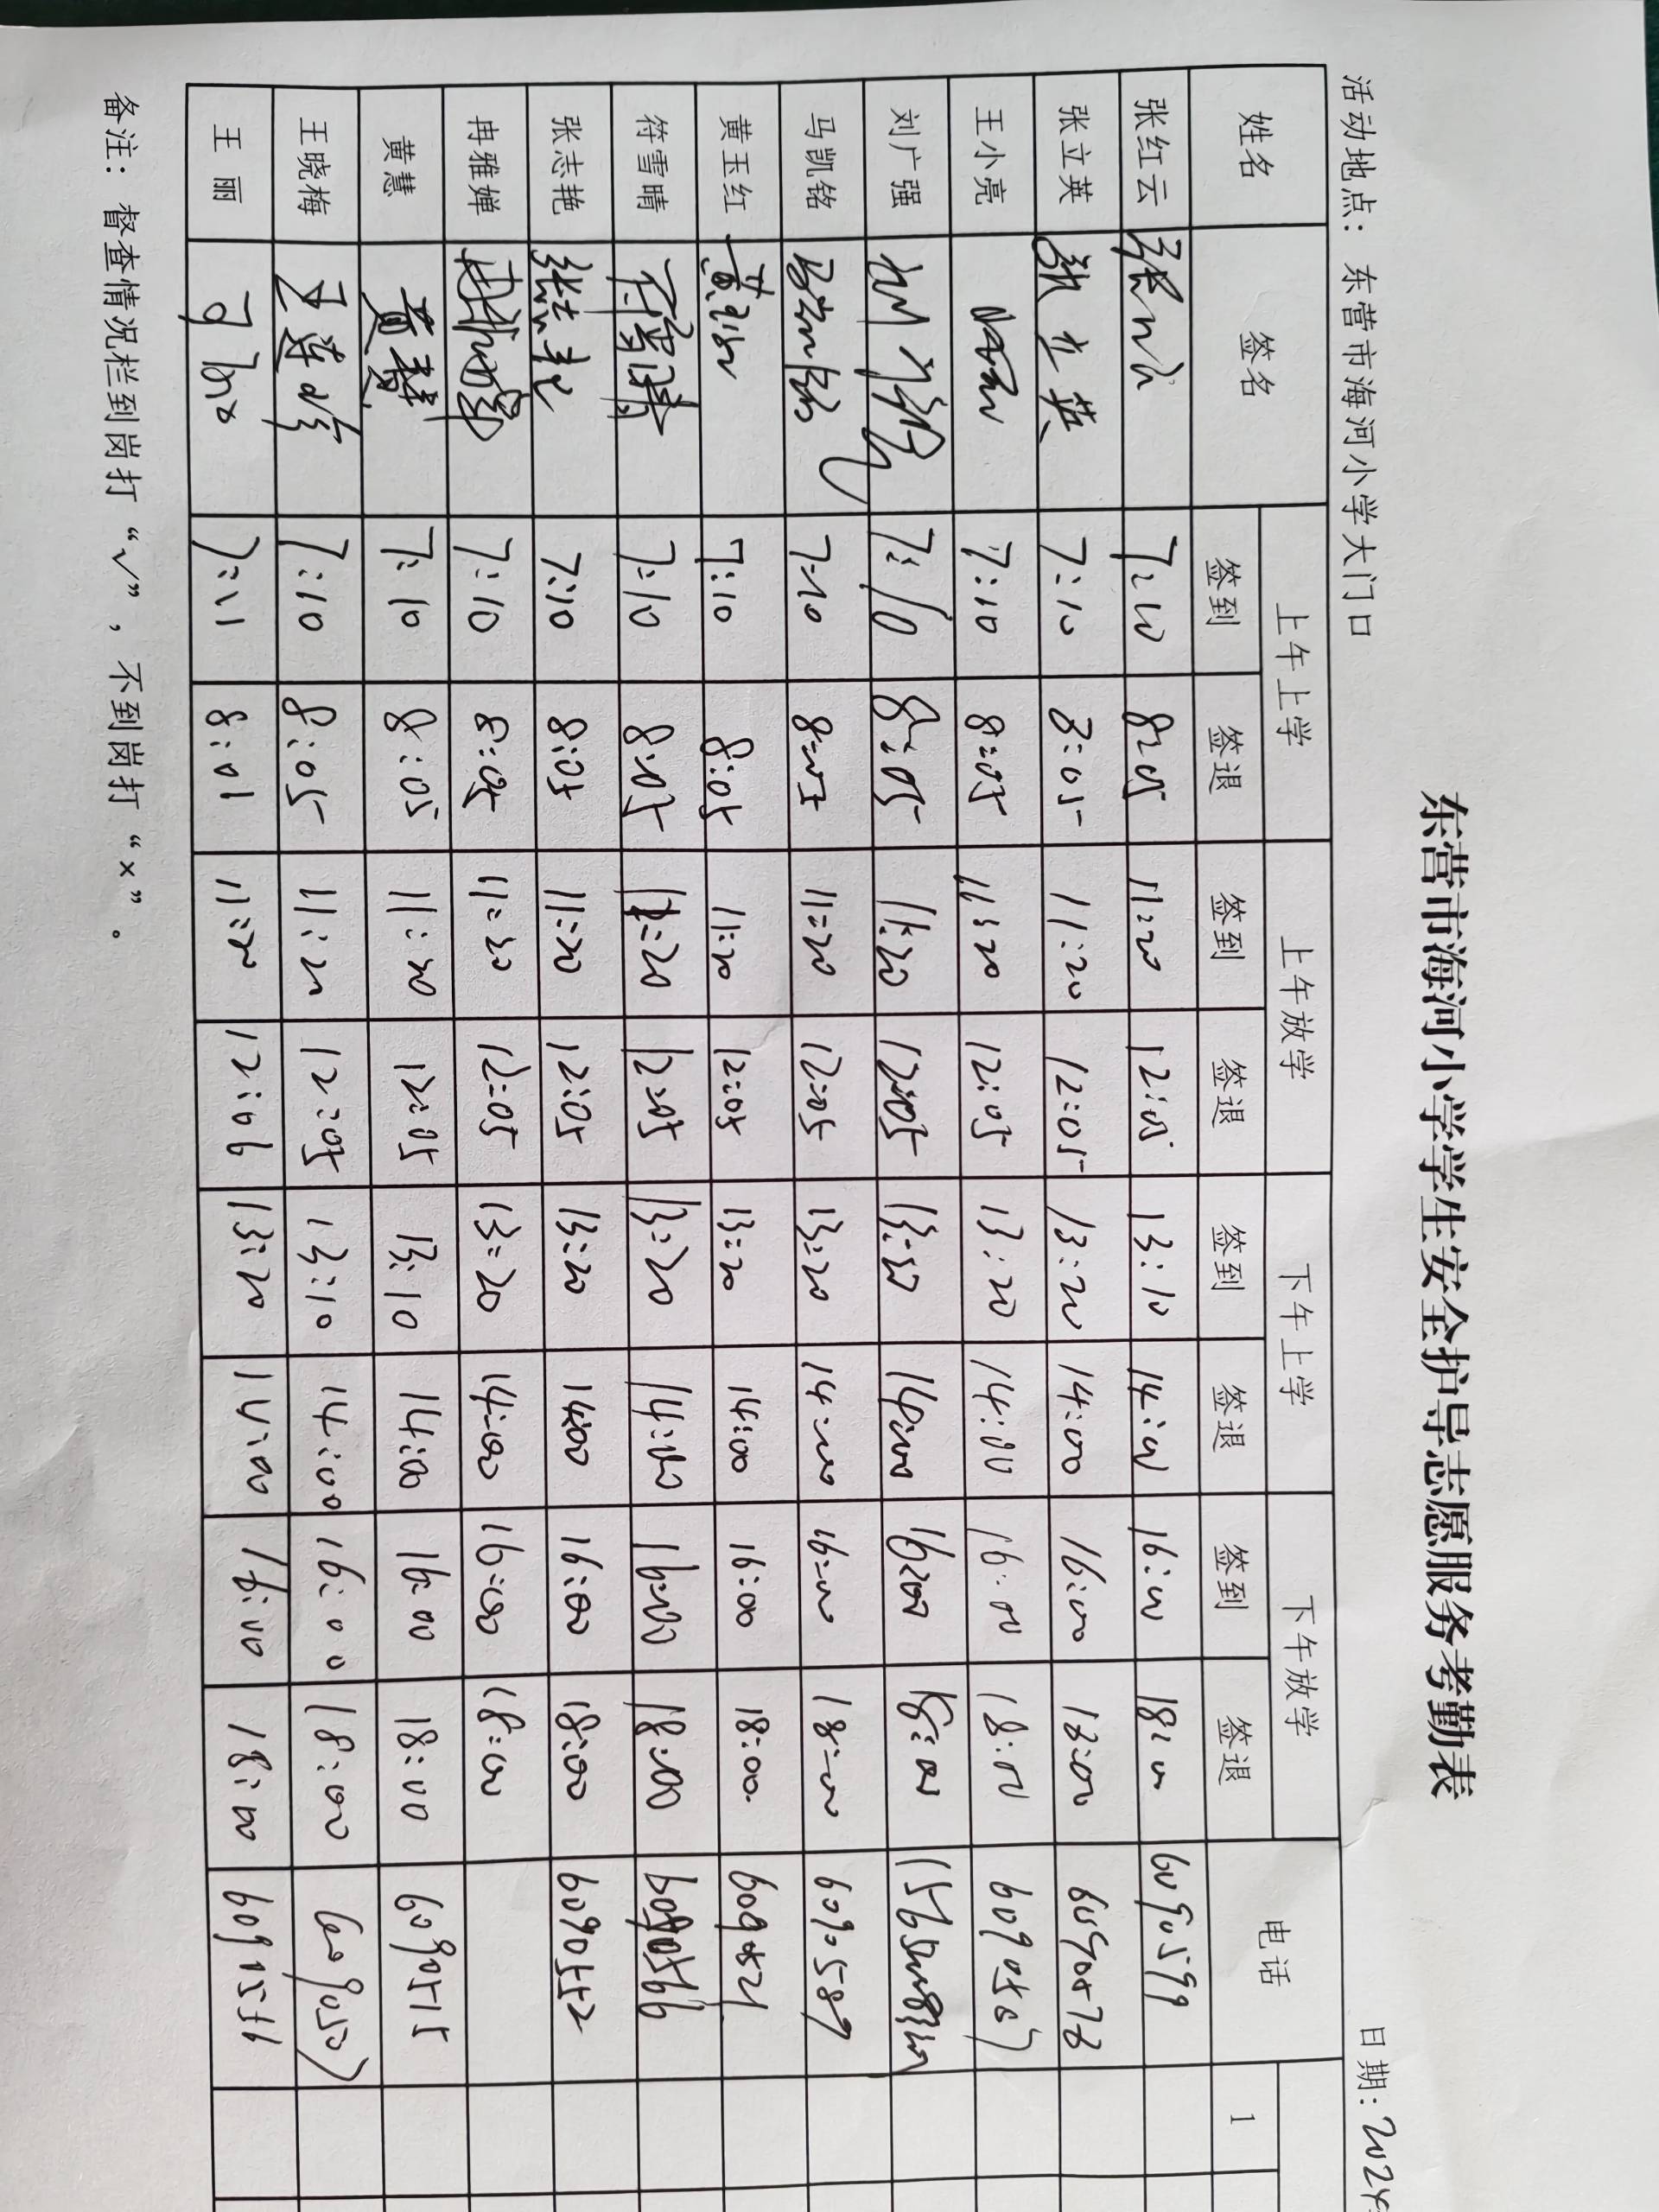 东营市海河小学学生安全护导志愿服务考勤表
活动地点：东营市海河小学大门口 日期：2024
姓名 签名 上午上学 上午放学 下午上学 下午放学 电话
签到 签退 签到 签退 签到 签退 签到 签退 1
张红云 张红云 7:10 8:05 11:20 12:05 13:10 14:00 16:00 18:00 6090599
张立英 张立英 7:10 8:05 11:20 12:05 13:20 14:00 16:00 18:00 6090578
王小亮 7:10 8:05 11:20 12:05 13:20 14:00 16:00 18:00 6090567
刘广强 刘广强 7:10 8:05 11:20 12:05 13:20 14:00 16:00 18:00
马凯铭 马凯铭 7:10 8:05 11:20 12:05 13:20 14:00 16:00 18:00 6090589
黄玉红 黄玉红 7:10 8:05 11:20 12:05 13:20 14:00 16:00 18:00 6090521
符雪晴 符雪晴 7:10 8:05 11:20 12:05 13:20 14:00 16:00 18:00 6090566
张志艳 张志艳 7:10 8:05 11:20 12:05 13:20 14:00 16:00 18:00 6090552
冉雅婵 冉雅婵 7:10 8:05 11:20 12:05 13:20 14:00 16:00 18:00
黄慧 黄慧 7:10 8:05 11:20 12:05 13:10 14:00 16:00 18:00 6090515
王晓梅 王晓梅 7:10 8:05 11:20 12:05 13:10 14:00 16:00 18:00
王丽 王丽 7:11 8:01 11:20 12:06 13:20 14:00 16:00 18:00
备注：督查情况栏到岗打“√”，不到岗打“×”。